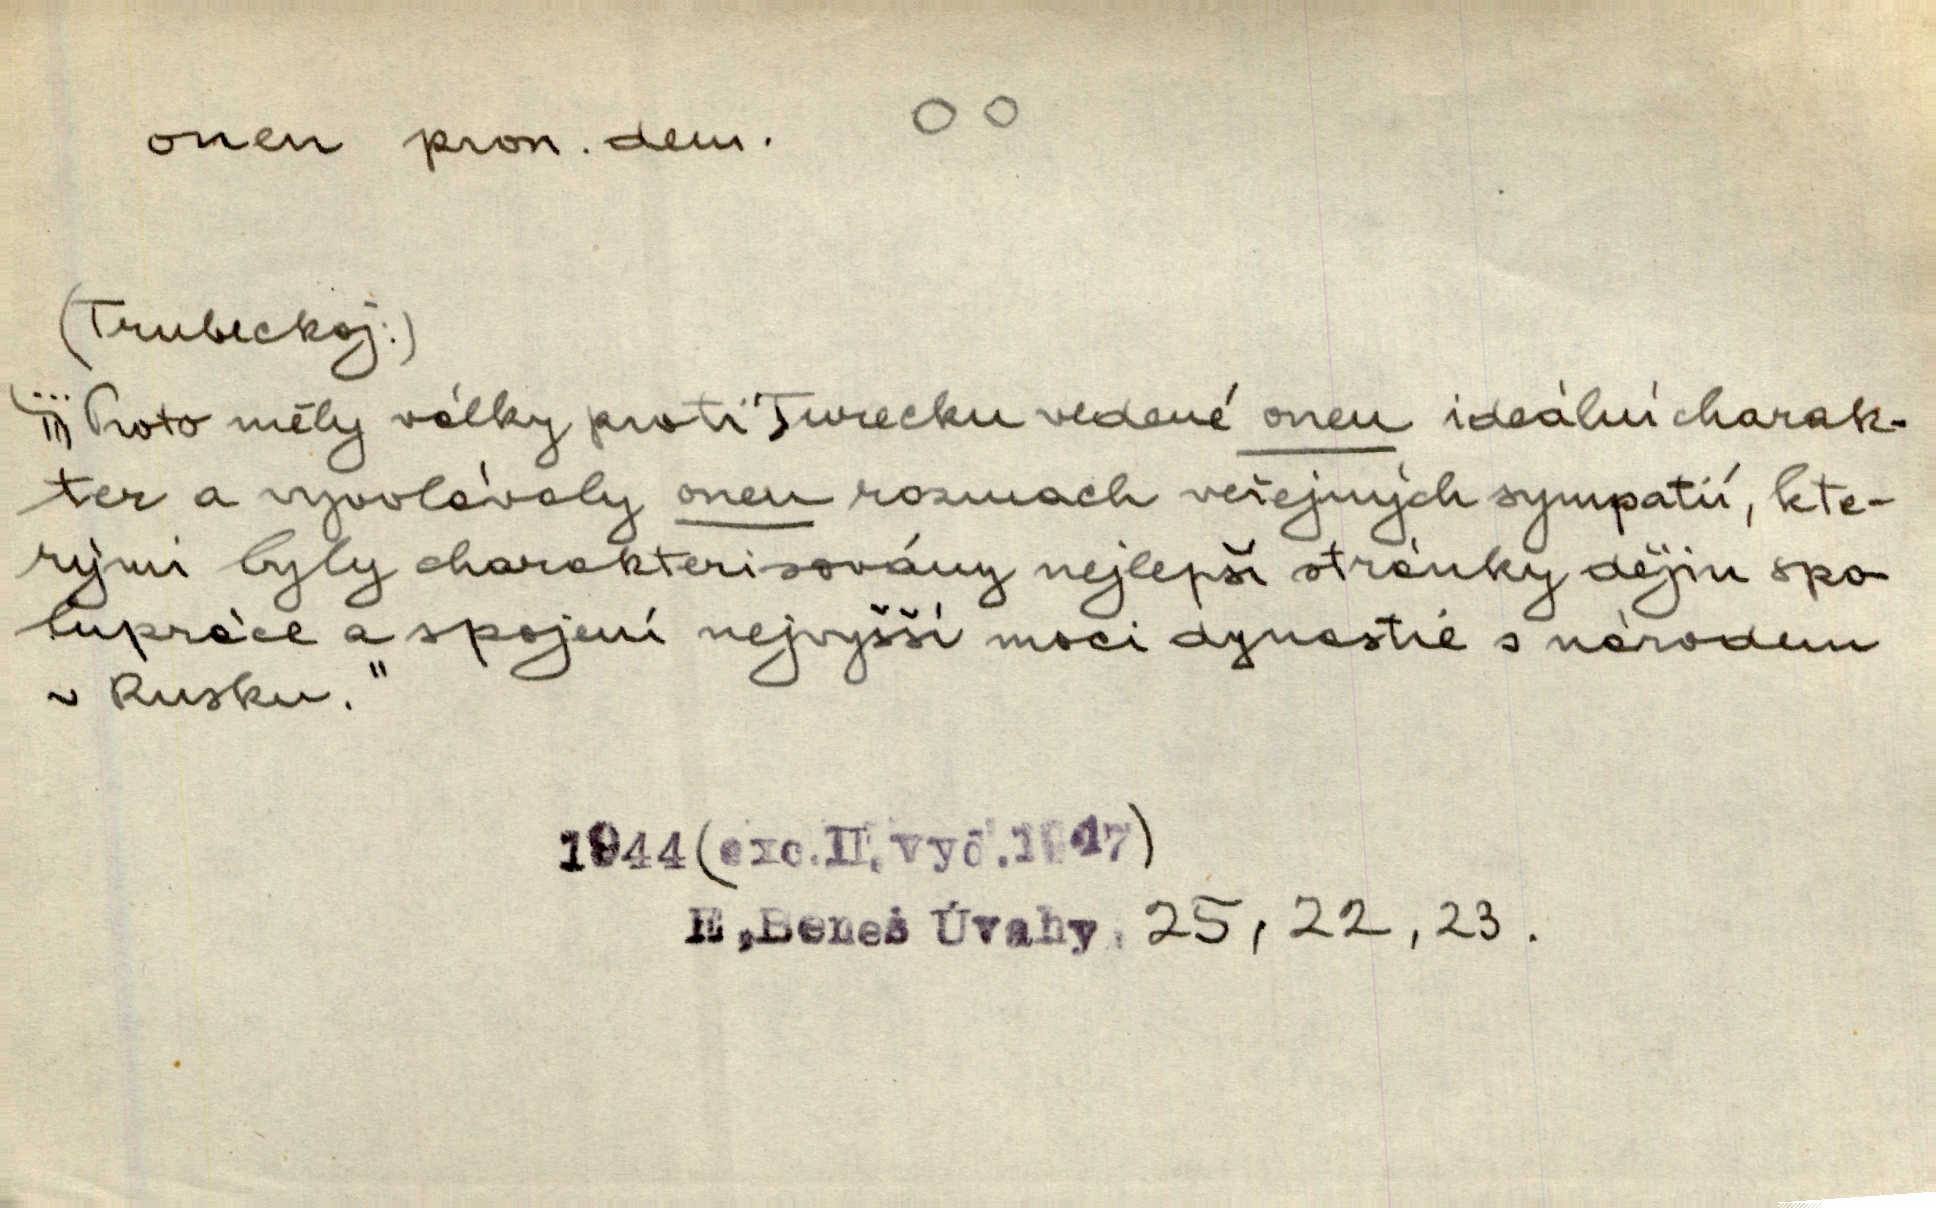 onen pron. dem. OO
(Trubeckoj:)
"Proto měly války proti Turecku vedené onen ideální charak-
ter a vyvolávaly onen rozmach veřejných sympatií, kte-
rými byly charakterisovány nejlepší stránky dějin spo-
lupráce a spojení nejvyšší moci dynastie s národem
v Rusku."
1944 (exc. II. vyd. 1947)
E. Beneš Úvahy, 25, 22, 23.